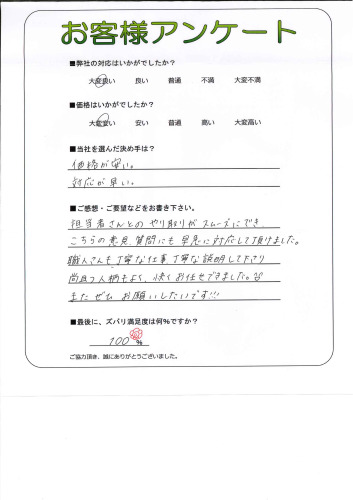 お客様アンケート
■弊社の対応はいかがでしたか?
大変良い 良い 普通 不満 大変不満
■価格はいかがでしたか?
大変安い 安い 普通 高い 大変高い
■当社を選んだ決め手は?
価格が安い。
対応が早い。
■ご感想・ご要望などをお書き下さい。
担当者さんとのやり取りがスムーズにでき
こちらの意見、質問にも早急に対応して頂けました。
職人さんも丁寧な仕事、丁寧な説明して下さり
尚且つ人柄もよく、快くお任せできました。
またぜひお願いしたいです!!!
■最後に、ズバリ満足度は何%ですか?
100 %
ご協力頂き、誠にありがとうございました。